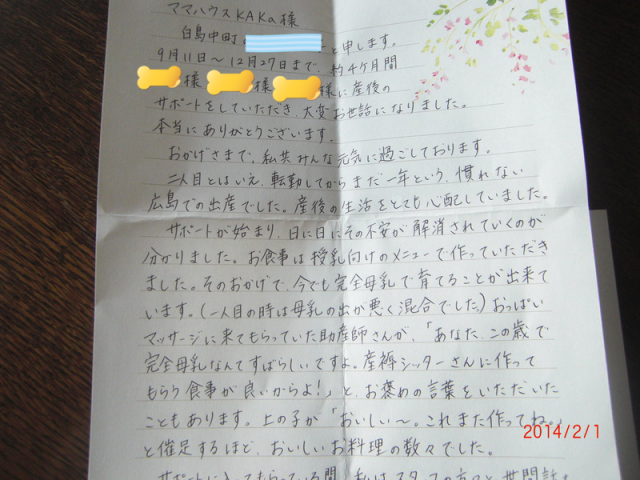 ママハウスKAKa様
白島中町 と申します。
9月11日〜12月27日まで、約4ケ月間
様 様 様に産後の
サポートをしていただき、大変お世話になりました。
本当にありがとうございます。
おかげさまで、私共みんな元気に過ごしております。
二人目とはいえ、転勤してからまだ一年という、慣れない
広島での出産でした。産後の生活をとても心配していました。
サポートが始まり、日に日にその不安が解消されていくのが
分かりました。お食事は授乳向けのメニューで作っていただき
ました。そのおかげで、今でも完全母乳で育てることが出来て
います。(一人目の時は母乳の出が悪く混合でした。)おっぱい
マッサージに来てもらっていた助産師さんが、「あなた、この歳で
完全母乳なんてすばらしいですよ。産褥シッターさんに作って
もらう食事が良いからよ!」と、お褒めの言葉をいただいた
こともあります。上の子が「おいしい〜。これまた作ってね。」
と催促するほど、おいしいお料理の数々でした。
サポートに入ってもらっている間、私はスタッフの方々と世間話を
2014/2/1